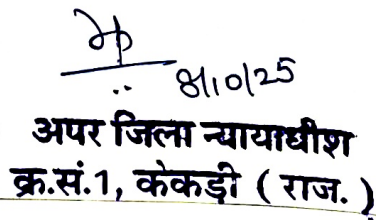 8/10/25
अपर जिला न्यायाधीश
क्र.सं.1, केकड़ी ( राज. )